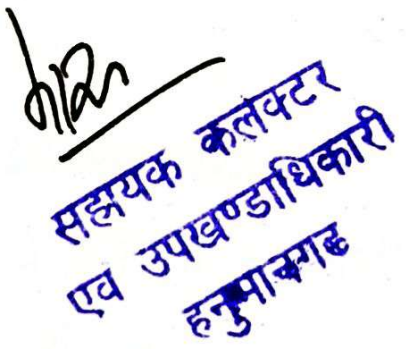 सहायक कलेक्टर
एव उपखण्डाधिकारी
हनुमानगढ